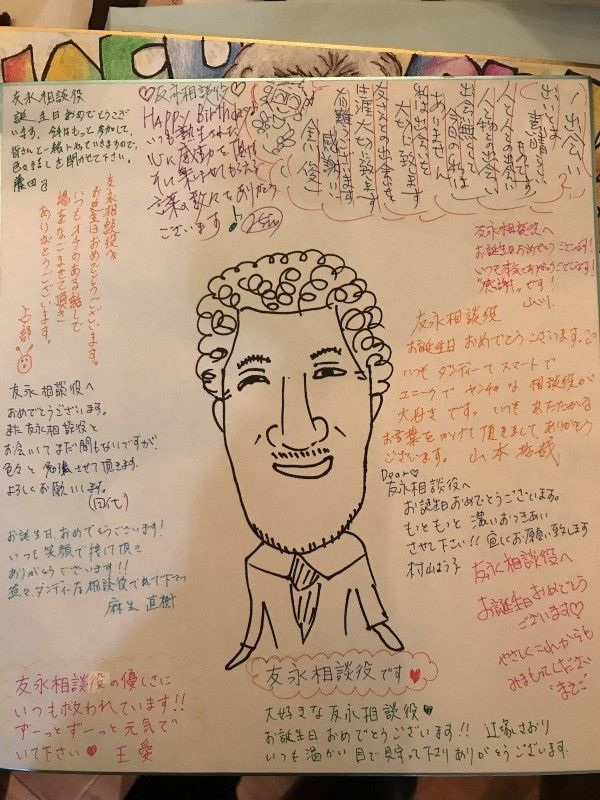 友永相談役
誕生日おめでとうござい
ます。今後もっと参加して、
皆さんと一緒にやっていきますので、
色々な話しを聞かせて下さい。
♡友永相談役♡
Happy Birthday
いつも
心に感動を頂き
言葉の数々をありがとう
ございます♪
出会い
人との出会い
物との出会い
今日の私は
ありません
大切に致します
友永さんとの出会いを
生涯大切に致します
有難うございます
感謝!!
友永相談役へ
お誕生日おめでとうございます。
いつもオチのある話しで
場をなごませて頂き
ありがとうございます。
占部
友永相談役へ
お誕生日おめでとうございます!
いつも本当にありがとうございます!
"感謝"です!
友永相談役
お誕生日おめでとうございます。
いつもダンディーでスマートで
ユニークでヤンチャな相談役が
大好きです。いつもあたたかな
お言葉をかけて頂きまして、ありがとう
ございます。山本
友永相談役へ
おめでとうございます。
まだ友永相談役と
お会いしてまだ間もないですが、
色々と勉強させて頂きます。
よろしくお願いします。
(田代)
Dear♡
友永相談役へ
お誕生日おめでとうございます。
もっともっと濃いおつきあい
させて下さい!!宜しくお願い致します
お誕生日、おめでとうございます!
いつも笑顔で接して頂き
ありがとうございます!!
ダンディーな相談役でいて下さい
麻生 直樹
友永相談役へ
お誕生日おめでとう
ございます♡
やさしくこれからも
みまもってください
友永相談役の優しさに
いつも救われています!!
ずーっとずーっと元気で
いて下さい♥ 王 愛
友永相談役です♥
大好きな友永相談役♥
お誕生日おめでとうございます!! 辻塚さおり
いつも温かい目で見守って下さりありがとうございます。